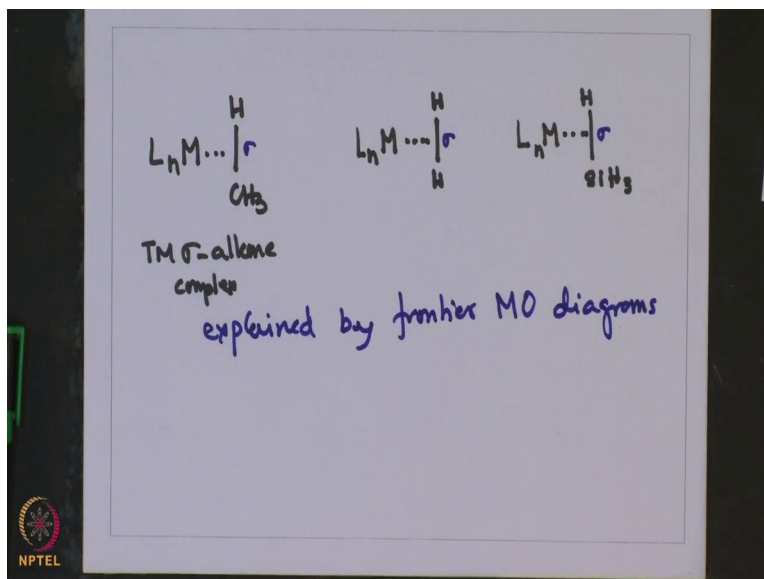 H H H
LnM···|σ LnM···|σ LnM···|σ
CH3 H SiH3
TM σ-alkane
complex
explained by frontier MO diagrams
NPTEL